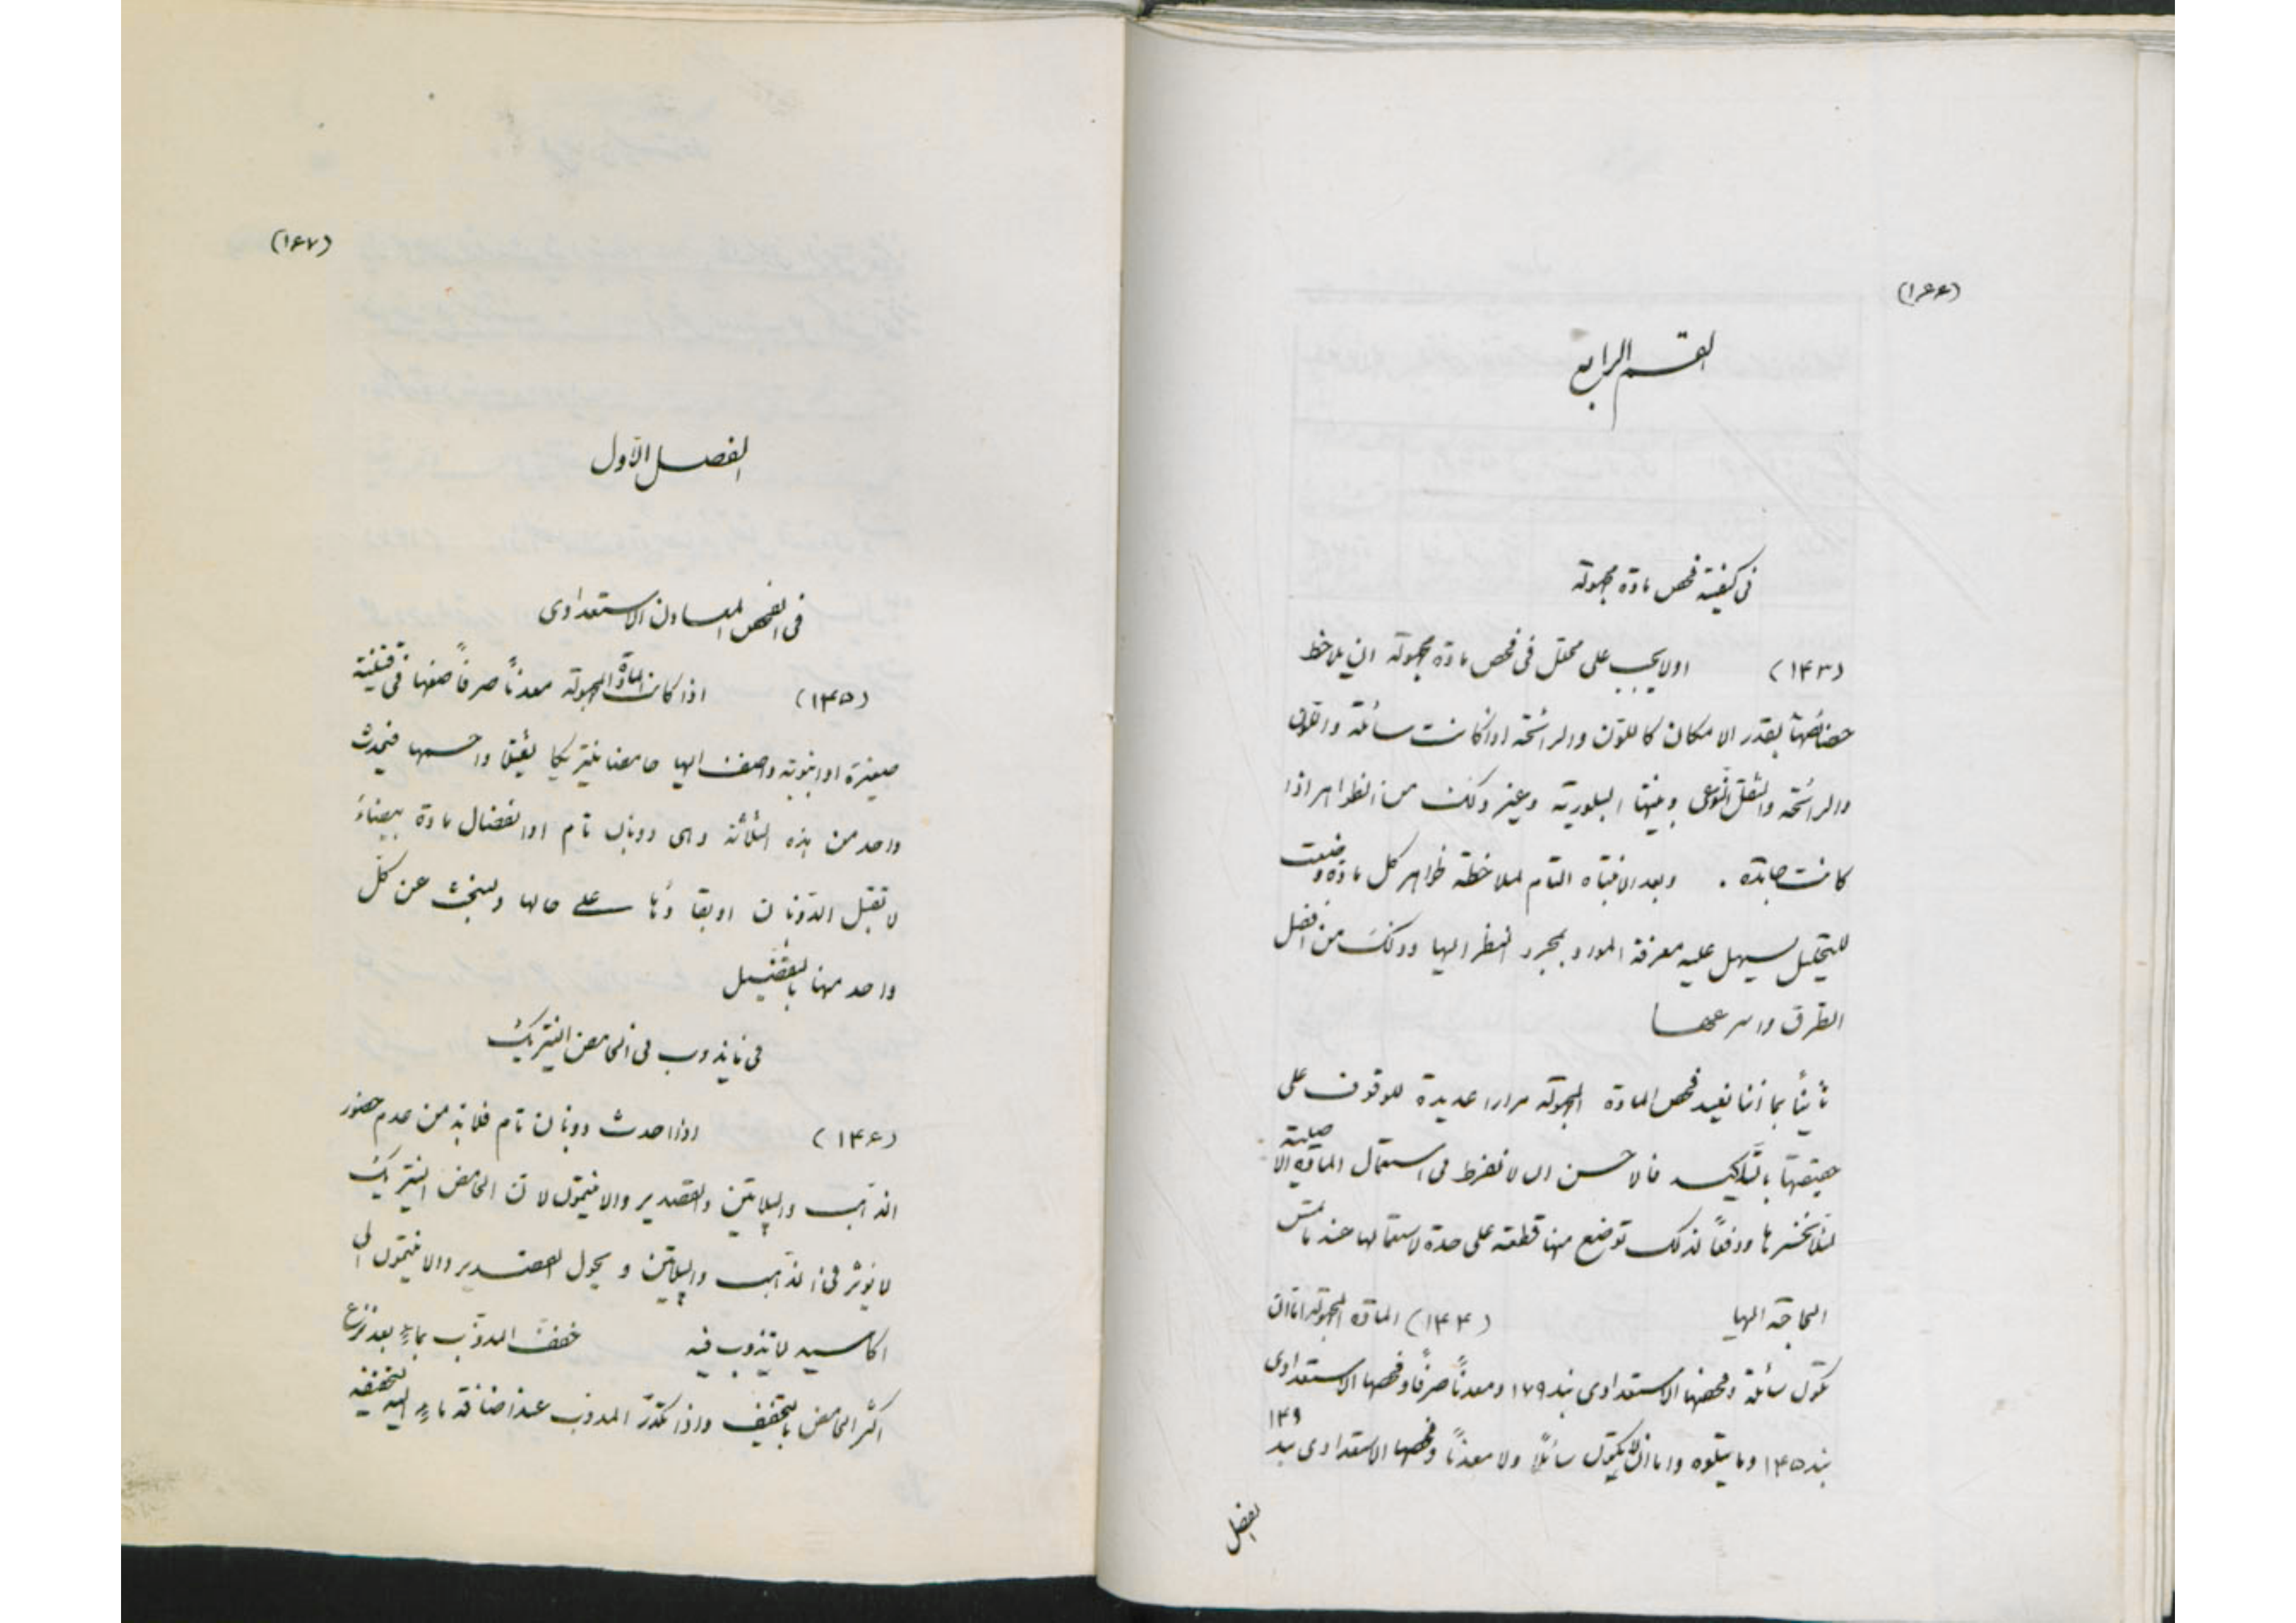 (١۶۶)
القسم الرابع
فى كيفية فحص مادة مجهولة
(١۴٣) اولا يجب على محلل فى فحص مادة مجهولة ان يلاحظ
خصائصها بقدر الامكان كاللون والرائحة اذا كانت سائلة واللون
والرائحة والثقل النوعى وهيئتها البلورية وغير ذلك من الظواهر اذا
كانت جامدة . وبعد الانتباه التام لملاحظة ظواهر كل مادة وضعت
للتحليل يسهل عليه معرفة المواد بمجرد النظر اليها وذلك من افضل
الطرق واسرعها
ثانياً بما اننا نعيد فحص المادة المجهولة مرارا عديدة للوقوف على
حقيقتها بالتاكيد فالاحسن ان لا نفرط فى استعمال المادة الاصلية
لئلا نخسرها ودفعاً لذلك توضع منها قطعة على حدة لاستعمالها عند ما تمس
الحاجة اليها (١۴۴) المادة المجهولة اما ان
تكون سائلة وفحصها الاستعدادى بند ١٧٩ ومعدناً صرفاً وفحصها الاستعدادى
بند ١۴۵ وما يتلوه واما ان لا تكون سائلاً ولا معدناً وفحصها الاستعدادى بند ١۴٩
لفصل
(١۶٧)
الفصل الاول
فى الفحص المعادن الاستعدادى
(١۴۵) اذا كانت المادة المجهولة معدناً صرفاً ضعها فى قنينة
صغيرة او انبوبة واضف اليها حامضا نيتريكا ثقيلا واحمها فيحدث
واحد من هذه الثلاثة وهى ذوبان تام او انفصال مادة بيضاء
لا تقبل الذوبان او بقاؤها على حالها ولنبحث عن كل
واحد منها بالتفصيل
فى ما يذوب فى الحامض النيتريك
(١۴۶) اذا حدث ذوبان تام فلا بد من عدم حضور
الذهب والپلاتين والقصدير والانتيمون لان الحامض النيتريك
لا يؤثر فى الذهب والپلاتين ويحول القصدير والانتيمون الى
اكاسيد لا تذوب فيه خفف المذوّب بماءٍ بعد نزع
اكثر الحامض بالتخفيف واذا تكدّر المذوب عند اضافة ماءٍ اليه لتخفيفه